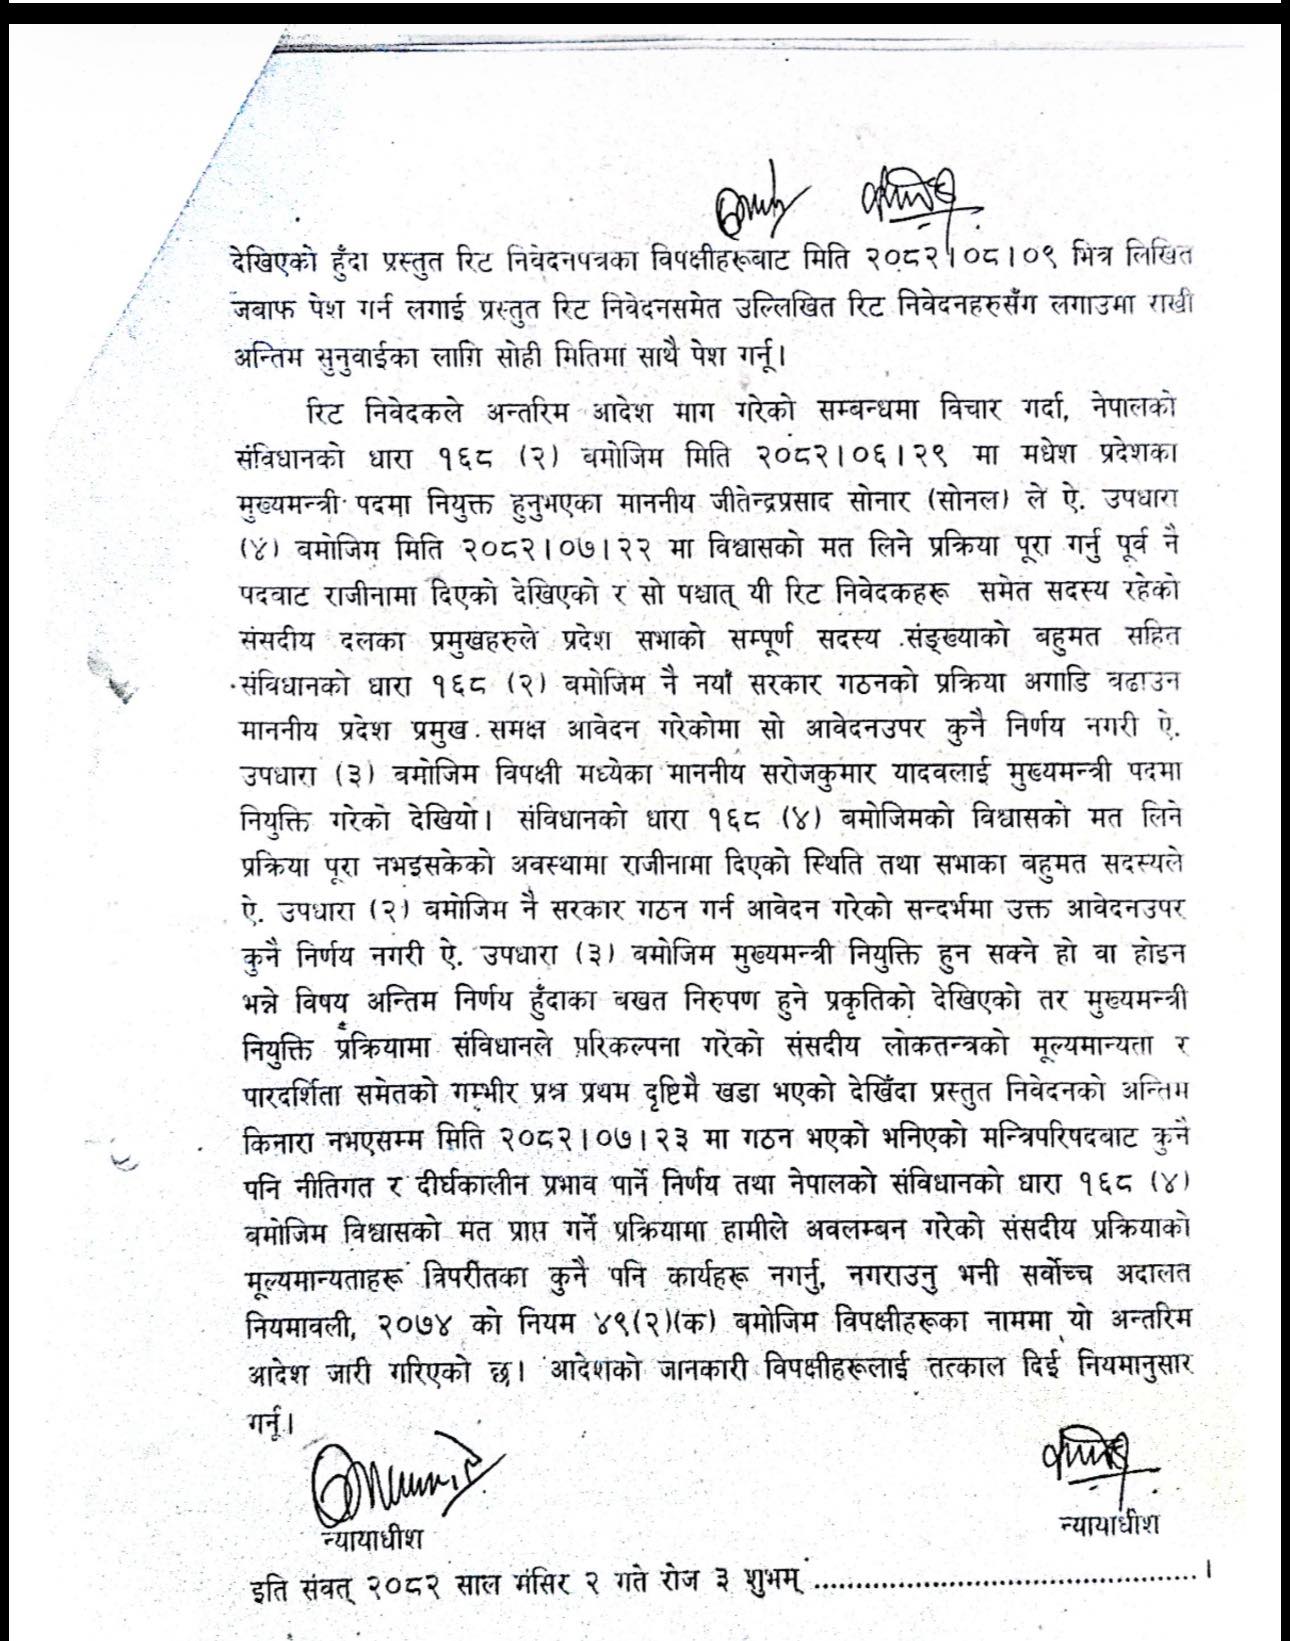 देखिएको हुँदा प्रस्तुत रिट निवेदनपत्रका विपक्षीहरूबाट मिति २०८२।०८।०९ भित्र लिखित
जवाफ पेश गर्न लगाई प्रस्तुत रिट निवेदनसमेत उल्लिखित रिट निवेदनहरुसँग लगाउमा राखी
अन्तिम सुनुवाईका लागि सोही मितिमा साथै पेश गर्नू।
रिट निवेदकले अन्तरिम आदेश माग गरेको सम्बन्धमा विचार गर्दा, नेपालको
संविधानको धारा १६८ (२) बमोजिम मिति २०८२।०६।२९ मा मधेश प्रदेशका
मुख्यमन्त्री पदमा नियुक्त हुनुभएका माननीय जीतेन्द्रप्रसाद सोनार (सोनल) ले ऐ. उपधारा
(४) बमोजिम मिति २०८२।०७।२२ मा विश्वासको मत लिने प्रक्रिया पूरा गर्नु पूर्व नै
पदबाट राजीनामा दिएको देखिएको र सो पश्चात् यी रिट निवेदकहरू समेत सदस्य रहेको
संसदीय दलका प्रमुखहरुले प्रदेश सभाको सम्पूर्ण सदस्य संङ्ख्याको बहुमत सहित
संविधानको धारा १६८ (२) बमोजिम नै नयाँ सरकार गठनको प्रक्रिया अगाडि बढाउन
माननीय प्रदेश प्रमुख समक्ष आवेदन गरेकोमा सो आवेदनउपर कुनै निर्णय नगरी ऐ.
उपधारा (३) बमोजिम विपक्षी मध्येका माननीय सरोजकुमार यादवलाई मुख्यमन्त्री पदमा
नियुक्ति गरेको देखियो। संविधानको धारा १६८ (४) बमोजिमको विश्वासको मत लिने
प्रक्रिया पूरा नभइसकेको अवस्थामा राजीनामा दिएको स्थिति तथा सभाका बहुमत सदस्यले
ऐ. उपधारा (२) बमोजिम नै सरकार गठन गर्न आवेदन गरेको सन्दर्भमा उक्त आवेदनउपर
कुनै निर्णय नगरी ऐ. उपधारा (३) बमोजिम मुख्यमन्त्री नियुक्ति हुन सक्ने हो वा होइन
भन्ने विषय अन्तिम निर्णय हुँदाका बखत निरुपण हुने प्रकृतिको देखिएको तर मुख्यमन्त्री
नियुक्ति प्रक्रियामा संविधानले परिकल्पना गरेको संसदीय लोकतन्त्रको मूल्यमान्यता र
पारदर्शिता समेतको गम्भीर प्रश्न प्रथम दृष्टिमै खडा भएको देखिँदा प्रस्तुत निवेदनको अन्तिम
किनारा नभएसम्म मिति २०८२।०७।२३ मा गठन भएको भनिएको मन्त्रिपरिषदबाट कुनै
पनि नीतिगत र दीर्घकालीन प्रभाव पार्ने निर्णय तथा नेपालको संविधानको धारा १६८ (४)
बमोजिम विश्वासको मत प्राप्त गर्ने प्रक्रियामा हामीले अवलम्बन गरेको संसदीय प्रक्रियाको
मूल्यमान्यताहरू विपरीतका कुनै पनि कार्यहरू नगर्नु, नगराउनु भनी सर्वोच्च अदालत
नियमावली, २०७४ को नियम ४९(२)(क) बमोजिम विपक्षीहरूका नाममा यो अन्तरिम
आदेश जारी गरिएको छ। आदेशको जानकारी विपक्षीहरूलाई तत्काल दिई नियमानुसार
गर्नू।
न्यायाधीश
न्यायाधीश
इति संवत् २०८२ साल मंसिर २ गते रोज ३ शुभम् ..............................................।